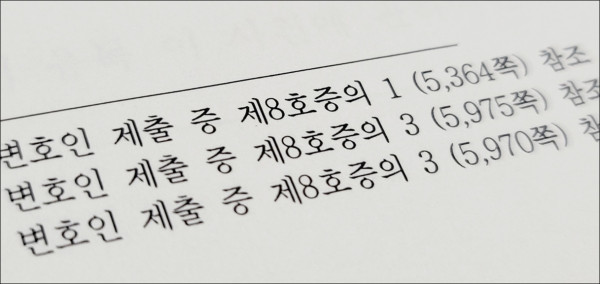 변호인 제출 증 제8호증의 1 (5,364쪽) 참조
변호인 제출 증 제8호증의 3 (5,975쪽) 참조
변호인 제출 증 제8호증의 3 (5,970쪽) 참